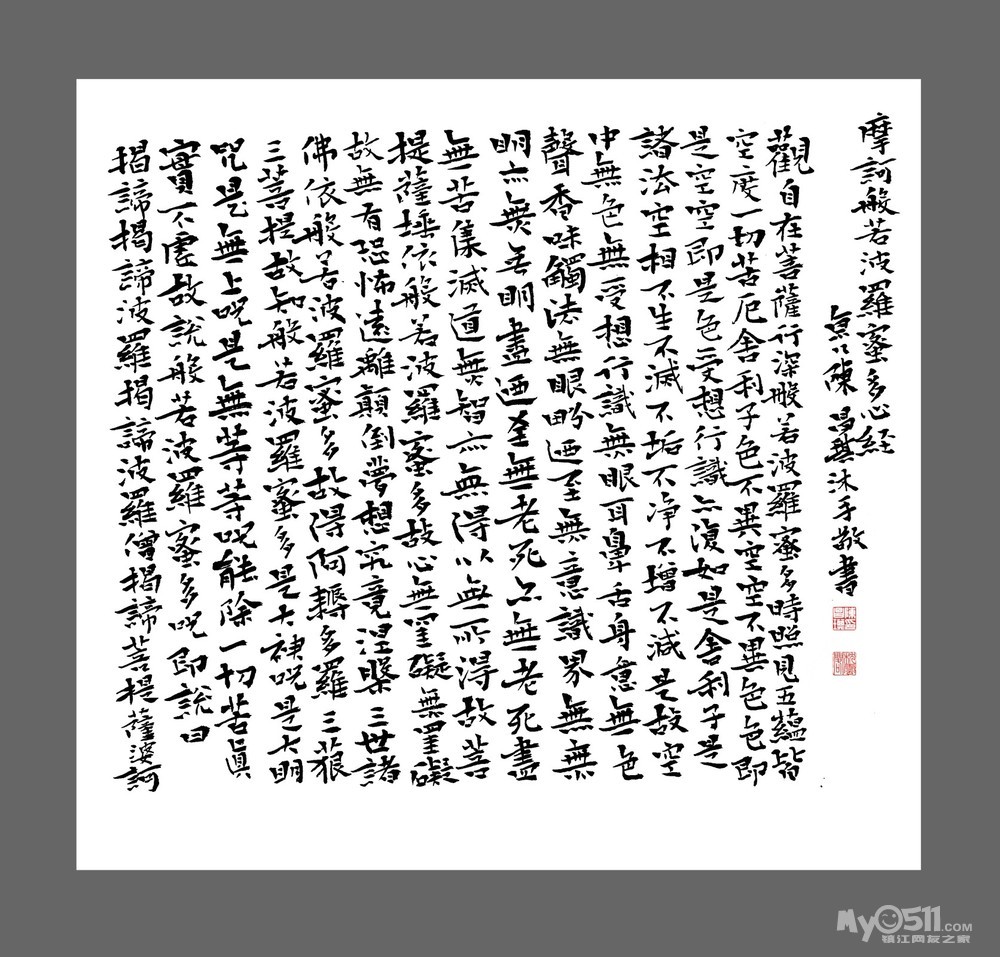 摩訶般若波羅蜜多心経
陳沐手敬書
觀自在菩薩行深般若波羅蜜多時照見五蘊皆
空度一切苦厄舍利子色不異空空不異色色即
是空空即是色受想行識亦復如是舍利子是
諸法空相不生不滅不垢不净不增不減是故空
中無色無受想行識無眼耳鼻舌身意無色
聲香味觸法無眼界廼至無意識界無無
明亦無無明盡廼至無老死亦無老死盡
無苦集滅道無智亦無得以無所得故菩
提薩埵依般若波羅蜜多故心無罣礙無罣礙
故無有恐怖遠離顛倒夢想究竟涅槃三世諸
佛依般若波羅蜜多故得阿耨多羅三藐
三菩提故知般若波羅蜜多是大神咒是大明
咒是無上咒是無等等咒能除一切苦眞
實不虛故說般若波羅蜜多咒即說曰
揭諦揭諦波羅揭諦波羅僧揭諦菩提薩婆訶
My0511.COM
镇江网友之家